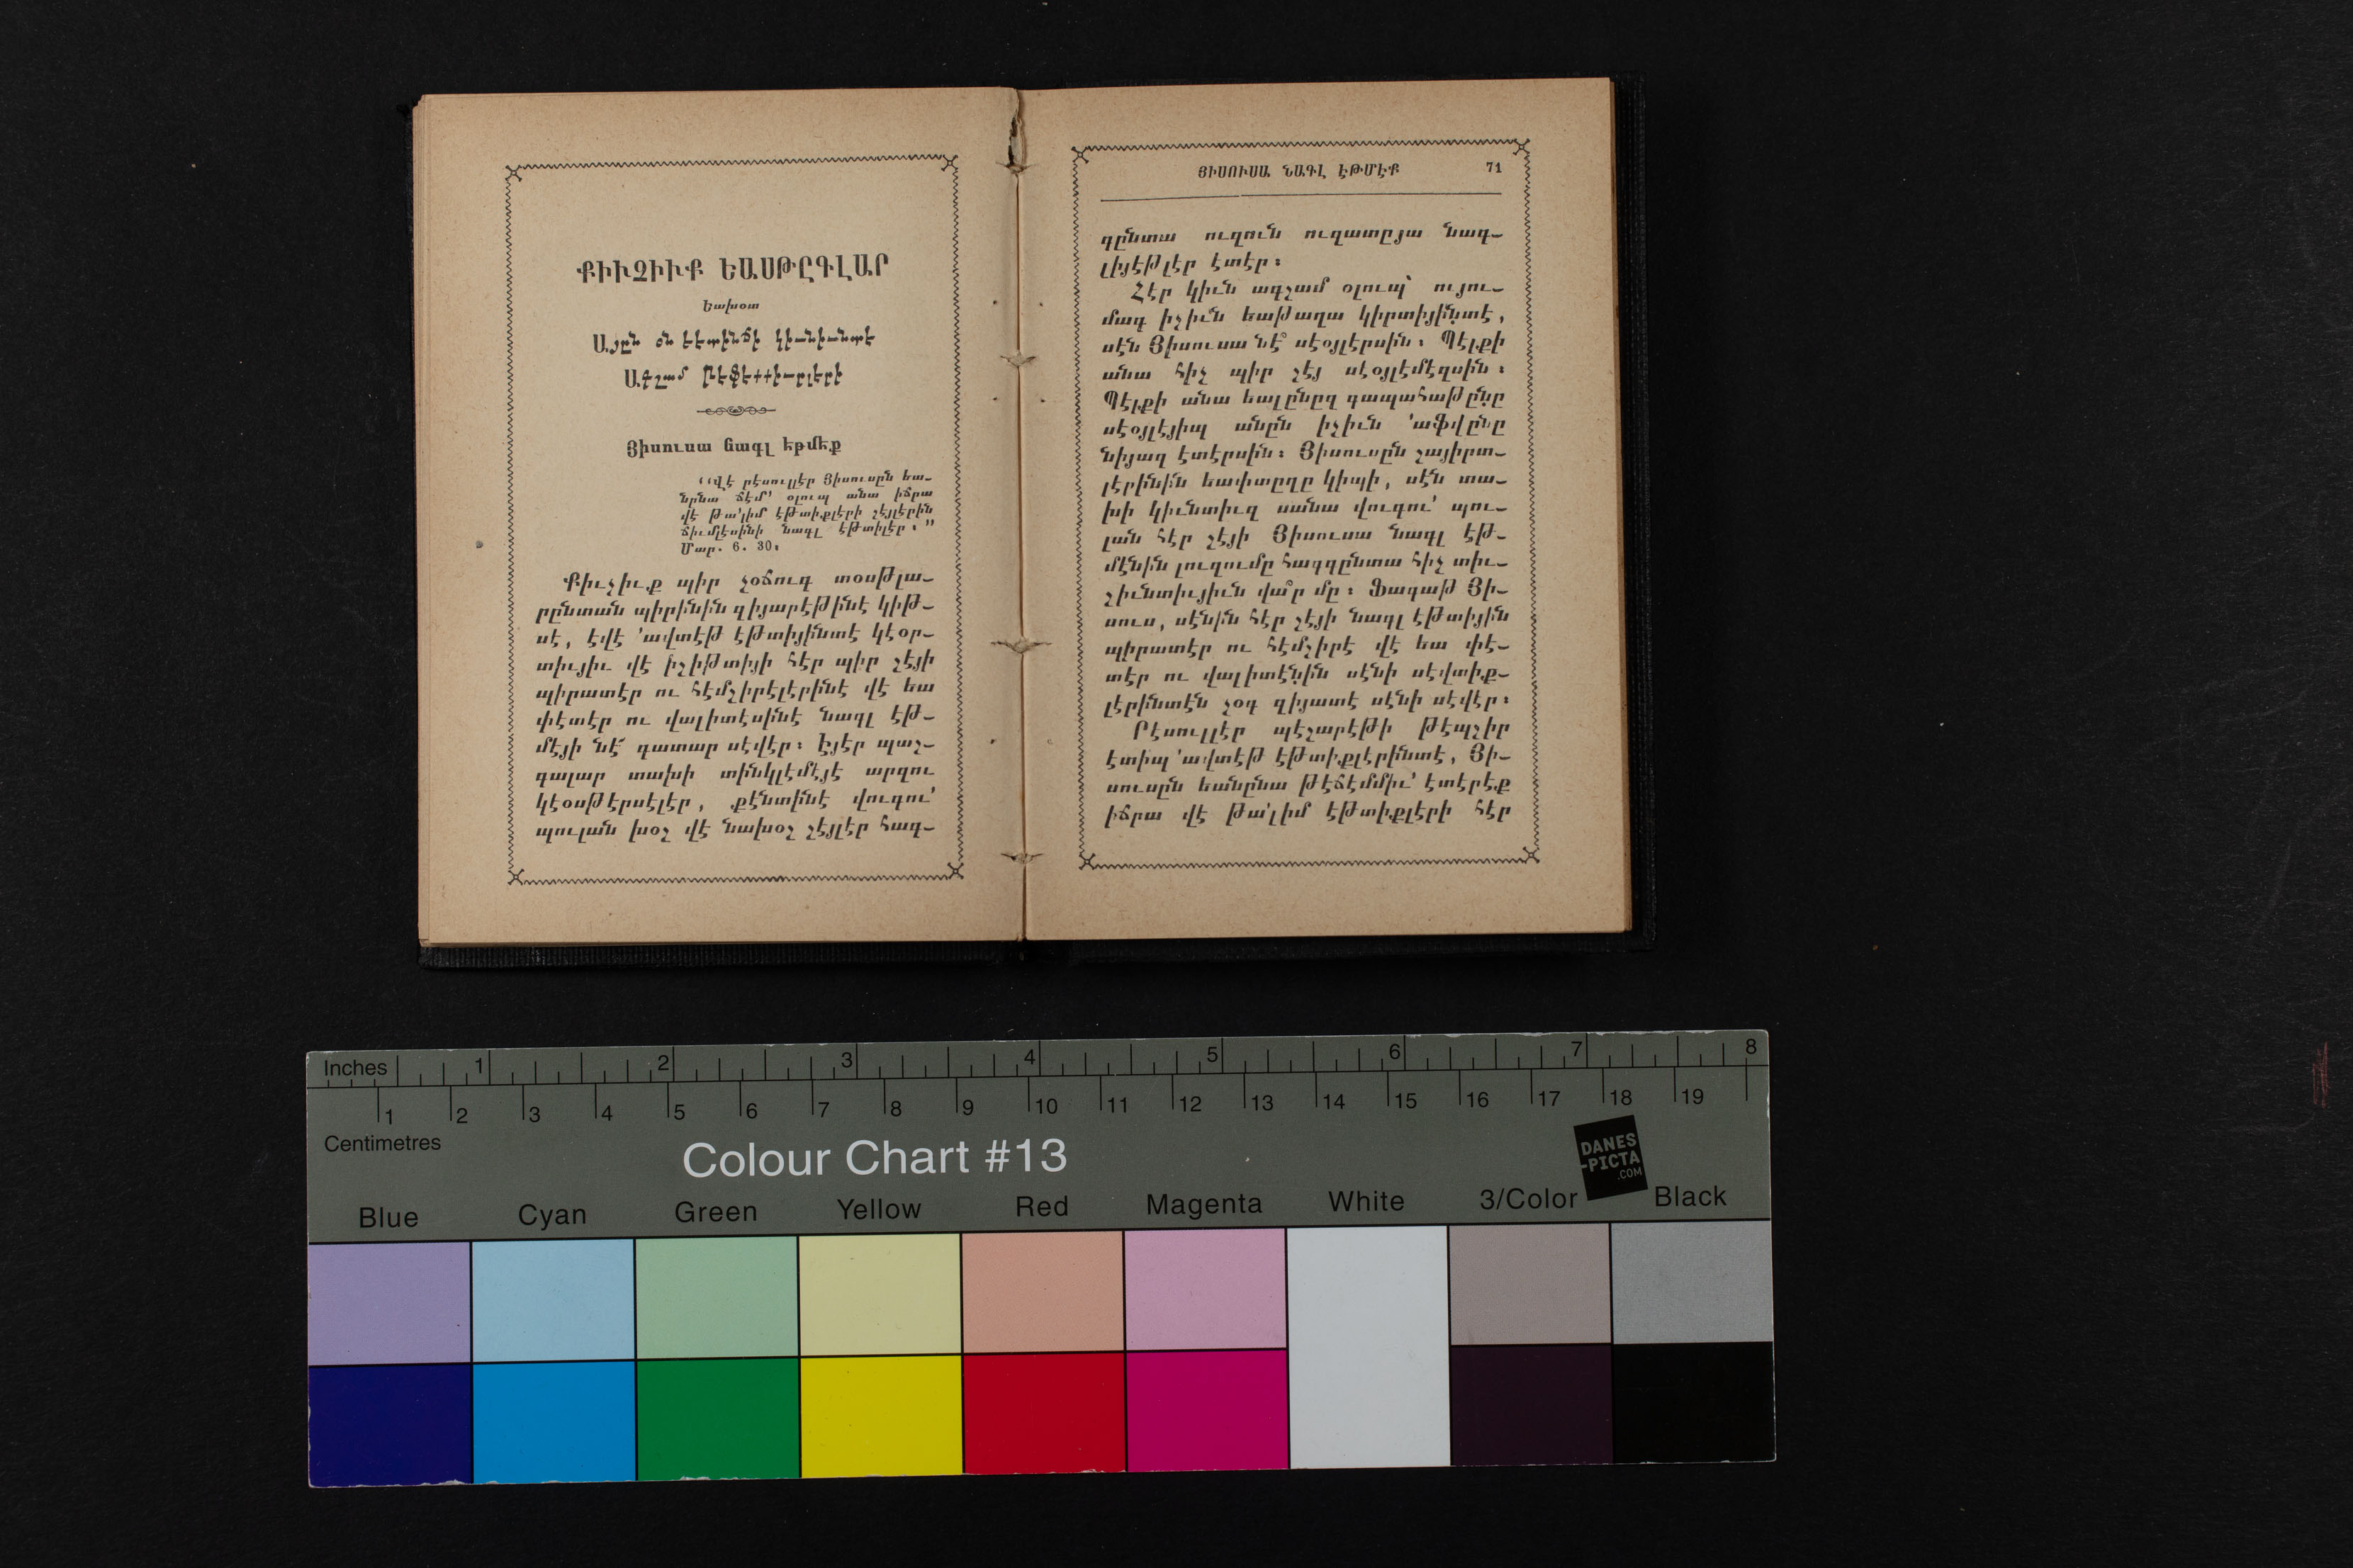 ՔԻՒՉԻՒՔ ԵԱՍԹԸԳԼԱՐ
Եախօտ
Այըն օն եէտինճի կիւնիւնտէ
Ագշամ թէֆէքքիւրլերի
Յիսուսա նագլ էթմէք
‘‘Վէ րէսուլլէր Յիսուսըն եա-
նընա ճէմ՚ օլուպ անա իճրա
վէ թա՚լիմ էթտիքլէրի շէյլէրին
ճիւմլէսինի նագլ էթտիլէր։’’
Մար. 6. 30։
Քիւչիւք պիր չօճուգ տօսթլա-
րընտան պիրինին զիյարէթինէ կիթ-
սէ, էվէ ՚ավտէթ էթտիյինտէ կէօր-
տիւյիւ վէ իշիթտիյի հէր պիր շէյի
պիրատէր ու հէմշիրէլէրինէ վէ եա
փէտէր ու վալիտէսինէ նագլ էթ-
մէյի նէ՜ գատար սէվէր։ Էյէր պաշ-
գալար տախի տինկլէմէյէ արզու
կէօսթէրսէլէր, քէնտինէ վուգու՚
պուլան խօշ վէ նախօշ շէյլէր հագ-
ՅԻՍՈՒՍԱ ՆԱԳԼ ԷԹՄԷՔ 71
գընտա ուզուն ուզատըյա նագ-
լիյէթլէր էտէր։
Հէր կիւն ագշամ օլուպ՝ ույու-
մագ իչիւն եաթաղա կիրտիյինտէ,
սէն Յիսուսա նէ՞ սէօյլէրսին։ Պէլքի
անա հիչ պիր շէյ սէօյլէմէզսին։
Պէլքի անա եալընըզ գապահաթընը
սէօյլէյիպ անըն իչիւն ՚աֆվընը
նիյազ էտէրսին։ Յիսուսըն շայիրտ-
լէրինին եափտըղը կիպի, սէն տա-
խի կիւնտիւզ սանա վուգու՚ պու-
լան հէր շէյի Յիսուսա նագլ էթ-
մէնին լուզումը հագգընտա հիչ տիւ-
շիւնտիւյիւն վա՞ր մը։ Ֆագաթ Յի-
սուս, սէնին հէր շէյի նագլ էթտիյին
պիրատէր ու հէմշիրէ վէ եա փէ-
տէր ու վալիտէնին սէնի սէվտիք-
լէրինտէն չօգ զիյատէ սէնի սէվէր։
Րէսուլլէր պէշարէթի թէպշիր
էտիպ ՚ավտէթ էթտիքլէրինտէ, Յի-
սուսըն եանընա թէճէմմիւ՚ էտէրէք
իճրա վէ թա՚լիմ էթտիքլէրի հէր
Inches 1 2 3 4 5 6 7 8
1 2 3 4 5 6 7 8 9 10 11 12 13 14 15 16 17 18 19
Centimetres
Colour Chart #13
DANES
-PICTA
.COM
Blue Cyan Green Yellow Red Magenta White 3/Color Black